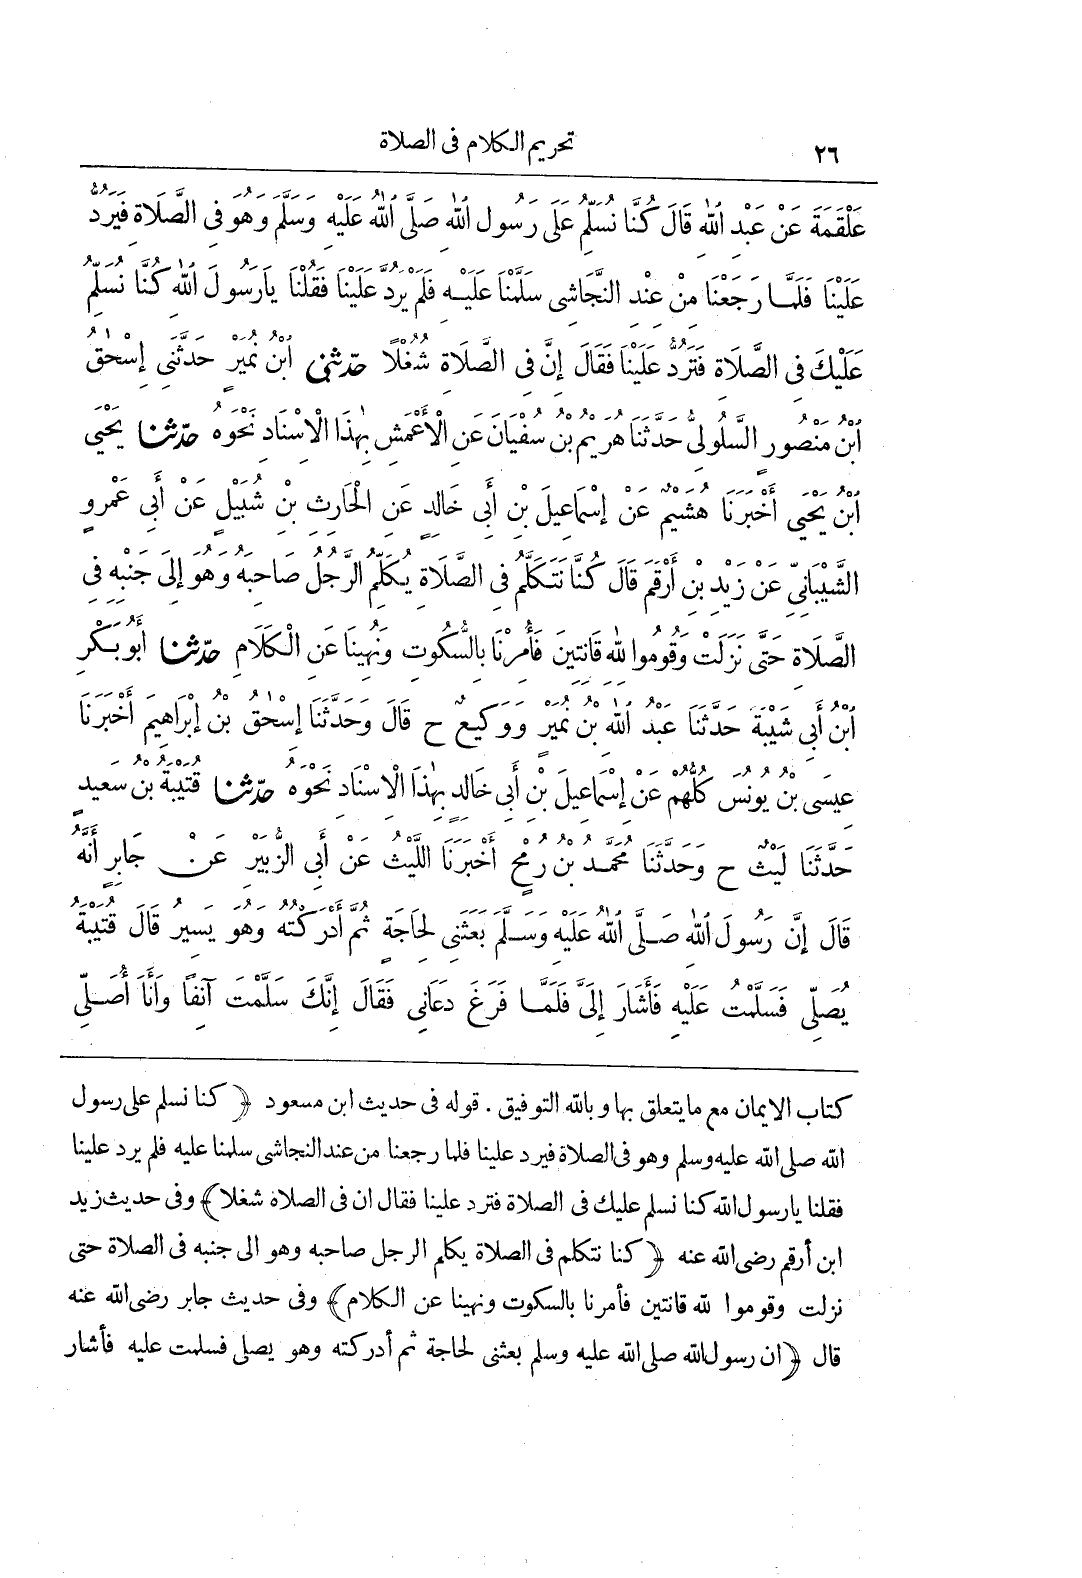 ٢٦ تحريم الكلام فى الصلاة
عَلْقَمَةَ عَنْ عَبْدِ ٱللهِ قَالَ كُنَّا نُسَلِّمُ عَلَى رَسُولِ ٱللهِ صَلَّى ٱللهُ عَلَيْهِ وَسَلَّمَ وَهُوَ فِى الصَّلَاةِ فَيَرُدُّ
عَلَيْنَا فَلَمَّا رَجَعْنَا مِنْ عِنْدِ النَّجَاشِى سَلَّمْنَا عَلَيْهِ فَلَمْ يَرُدَّ عَلَيْنَا فَقُلْنَا يَارَسُولَ ٱللهِ كُنَّا نُسَلِّمُ
عَلَيْكَ فِى الصَّلَاةِ فَتَرُدُّ عَلَيْنَا فَقَالَ إِنَّ فِى الصَّلَاةِ شُغُلًا حَدَّثَنِى ٱبْنُ نُمَيْرٍ حَدَّثَنِى إِسْحٰقُ
ٱبْنُ مَنْصُورٍ السَّلُولِىُّ حَدَّثَنَا هُرَيْمُ بْنُ سُفْيَانَ عَنِ الْأَعْمَشِ بِهٰذَا الْاِسْنَادِ نَحْوَهُ حَدَّثَنَا يَحْيَى
ٱبْنُ يَحْيَى أَخْبَرَنَا هُشَيْمٌ عَنْ إِسْمَاعِيلَ بْنِ أَبِى خَالِدٍ عَنِ الْحَارِثِ بْنِ شُبَيْلٍ عَنْ أَبِى عَمْرٍو
الشَّيْبَانِىِّ عَنْ زَيْدِ بْنِ أَرْقَمَ قَالَ كُنَّا نَتَكَلَّمُ فِى الصَّلَاةِ يُكَلِّمُ الرَّجُلُ صَاحِبَهُ وَهُوَ إِلَى جَنْبِهِ فِى
الصَّلَاةِ حَتَّى نَزَلَتْ وَقُومُوا لِلهِ قَانِتِينَ فَأُمِرْنَا بِالسُّكُوتِ وَنُهِينَا عَنِ الْكَلَامِ حَدَّثَنَا أَبُو بَكْرِ
ٱبْنُ أَبِى شَيْبَةَ حَدَّثَنَا عَبْدُ ٱللهِ بْنُ نُمَيْرٍ وَوَكِيعٌ ح قَالَ وَحَدَّثَنَا إِسْحٰقُ بْنُ إِبْرَاهِيمَ أَخْبَرَنَا
عِيسَى بْنُ يُونُسَ كُلُّهُمْ عَنْ إِسْمَاعِيلَ بْنِ أَبِى خَالِدٍ بِهٰذَا الْاِسْنَادِ نَحْوَهُ حَدَّثَنَا قُتَيْبَةُ بْنُ سَعِيدٍ
حَدَّثَنَا لَيْثٌ ح وَحَدَّثَنَا مُحَمَّدُ بْنُ رُمْحٍ أَخْبَرَنَا اللَّيْثُ عَنْ أَبِى الزُّبَيْرِ عَنْ جَابِرٍ أَنَّهُ
قَالَ إِنَّ رَسُولَ ٱللهِ صَلَّى ٱللهُ عَلَيْهِ وَسَلَّمَ بَعَثَنِى لِحَاجَةٍ ثُمَّ أَدْرَكْتُهُ وَهُوَ يَسِيرُ قَالَ قُتَيْبَةُ
يُصَلِّى فَسَلَّمْتُ عَلَيْهِ فَأَشَارَ إِلَىَّ فَلَمَّا فَرَغَ دَعَانِى فَقَالَ إِنَّكَ سَلَّمْتَ آنِفًا وَأَنَا أُصَلِّى
كتاب الايمان مع ما يتعلق بها وبالله التوفيق . قوله فى حديث ابن مسعود ﴿كنا نسلم على رسول
الله صلى الله عليه وسلم وهو فى الصلاة فيرد علينا فلما رجعنا من عند النجاشى سلمنا عليه فلم يرد علينا
فقلنا يا رسول الله كنا نسلم عليك فى الصلاة فترد علينا فقال ان فى الصلاة شغلا﴾ وفى حديث زيد
ابن أرقم رضى الله عنه ﴿كنا نتكلم فى الصلاة يكلم الرجل صاحبه وهو الى جنبه فى الصلاة حتى
نزلت وقوموا لله قانتين فأمرنا بالسكوت ونهينا عن الكلام﴾ وفى حديث جابر رضى الله عنه
قال ﴿ان رسول الله صلى الله عليه وسلم بعثنى لحاجة ثم أدركته وهو يصلى فسلمت عليه فأشار